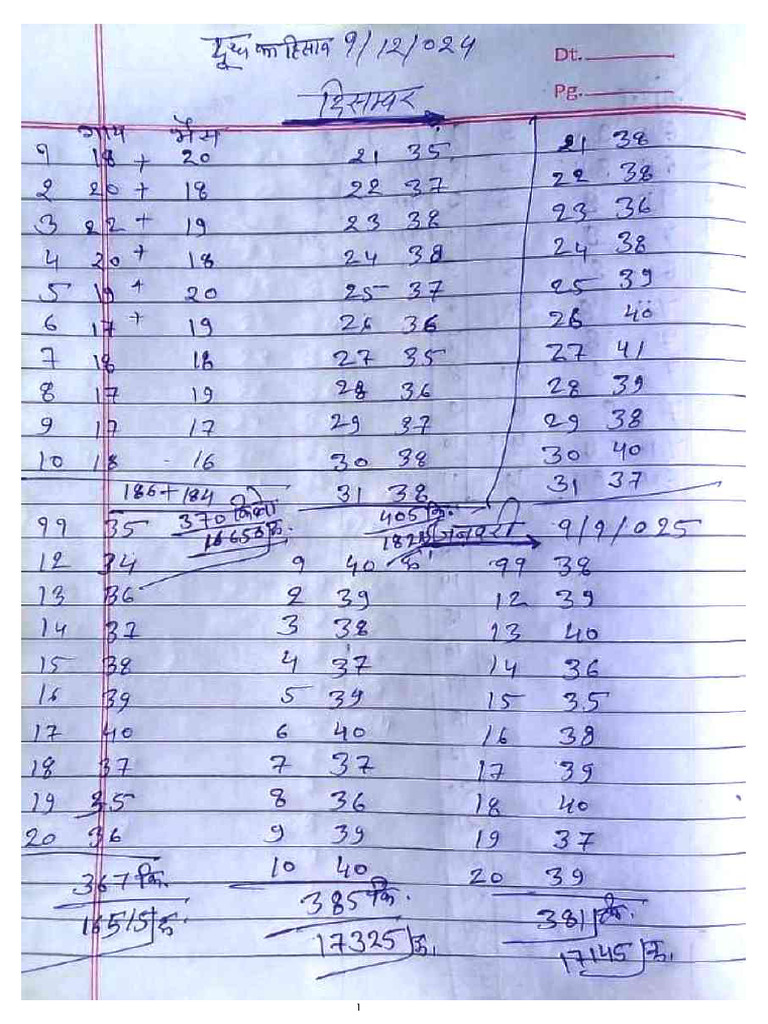 दूध का हिसाब 9/12/024
Dt.
Pg.
दिसम्बर
गाय भैंस
9 18 + 20 21 35 21 38
2 20 + 18 22 37 22 38
3 22 + 19 23 38 23 36
4 20 + 18 24 38 24 38
5 19 + 20 25 37 25 39
6 17 + 19 26 36 26 40
7 18 18 27 35 27 41
8 17 19 28 36 28 39
9 17 17 29 37 29 38
10 18 - 16 30 38 30 40
186 + 184 31 38 31 37
99 35 370 किलो 405 कि.
16650 रु. जनवरी 9/9/025
12 34 9 40 99 38
13 36 2 39 12 39
14 37 3 38 13 40
15 38 4 37 14 36
16 39 5 39 15 35
17 40 6 40 16 38
18 37 7 37 17 39
19 35 8 36 18 40
20 36 9 39 19 37
367 कि. 10 40 20 39
16515/रु. 385 कि. 381/कि.
17325/रु. 17145/रु.
1